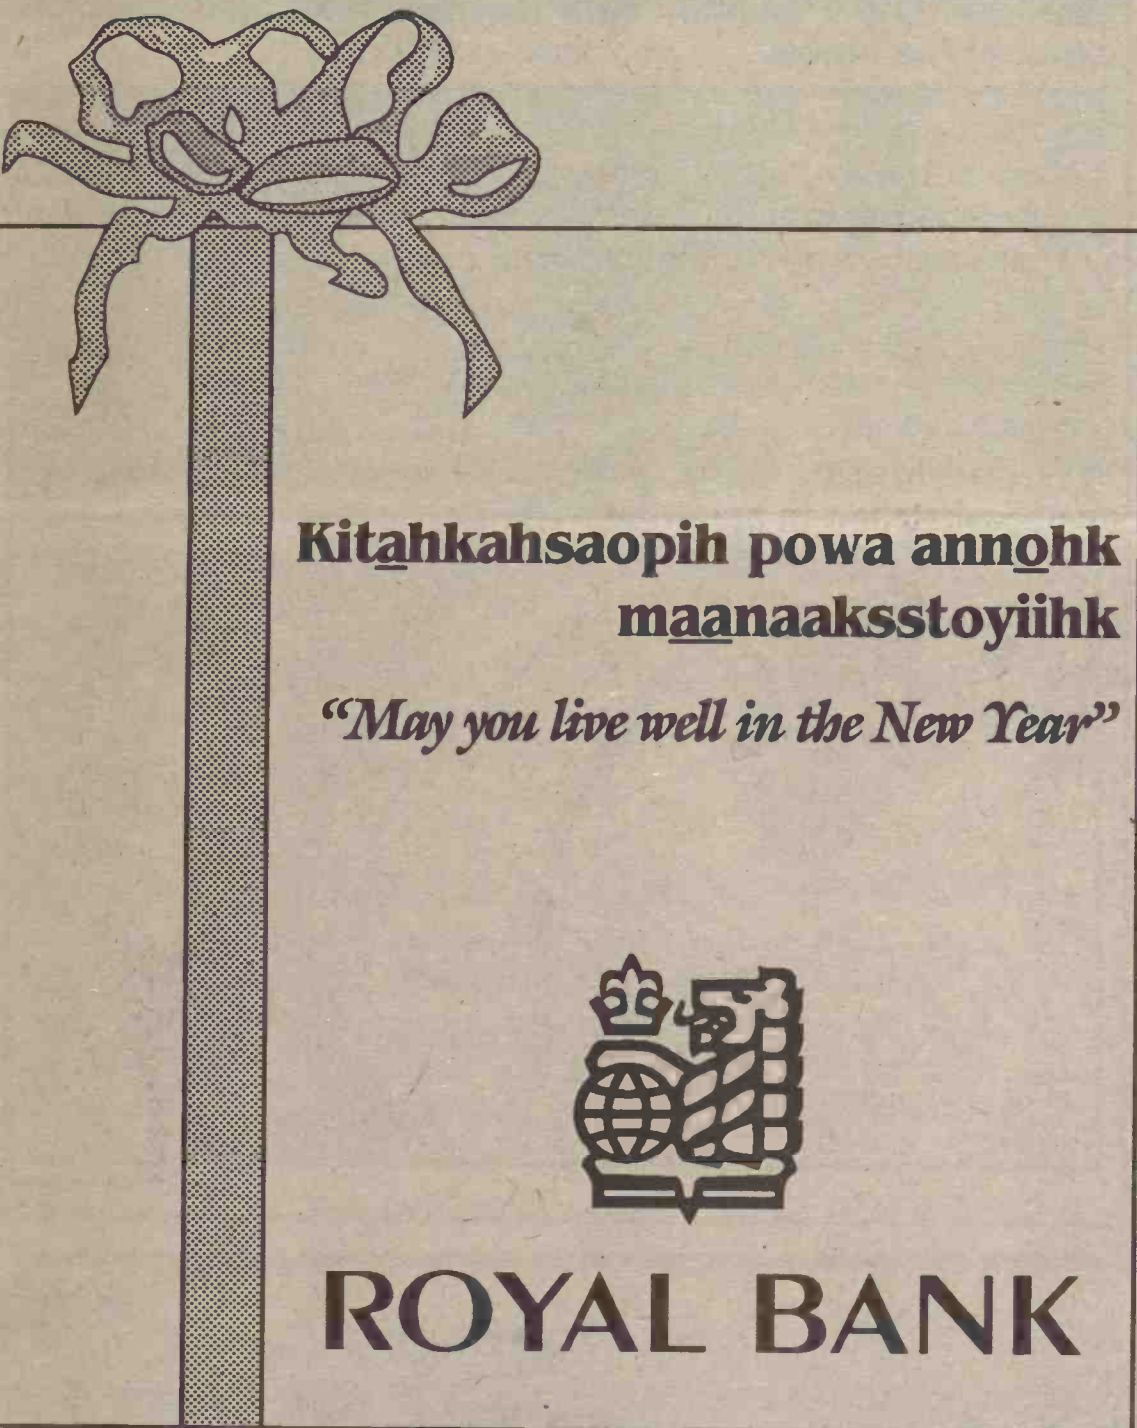 Kitahkahsaopih powa annohk
maanaaksstoyiihk
“May you live well in the New Year”
ROYAL BANK